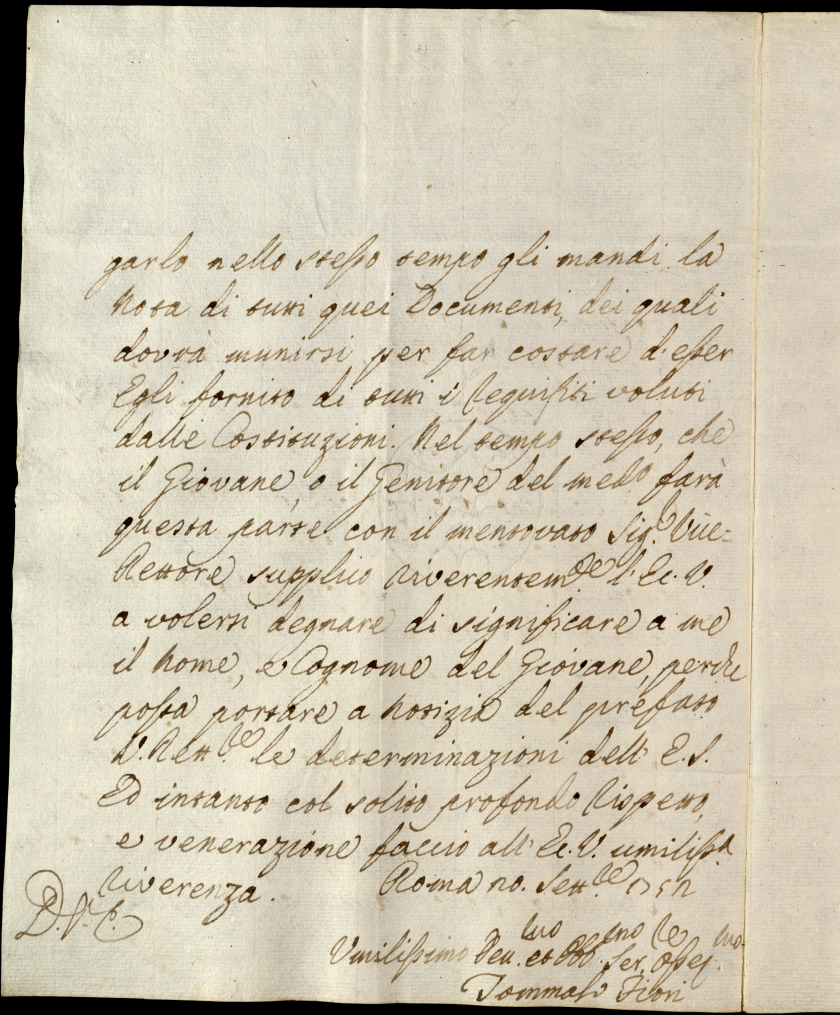 garlo nello stesso tempo gli mandi la
Nota di tutti quei Documenti, dei quali
dovrà munirsi per far costare d'esser
Egli fornito di tutti i Requisiti voluti
dalle Costituzioni. Nel tempo stesso, che
il Giovane, o il Genitore del med.º farà
questa parte con il mentovato Sig.e Vice=
Rettore supplico riverentem.te l'Ec. V.
a volersi degnare di significare a me
il Nome, e Cognome del Giovane, perche
possa portare a Notizia del prefato
V. Rett.re le determinazioni dell'E. S.
Ed intanto col solito profondo Rispetto,
e venerazione faccio all'Ec. V. umiliss.a
Riverenza. Roma Sett.re
D. V. E.
Umilissimo Dev.mo ed Obb.mo Ser.re Osseq.mo
Tommaso Fiori